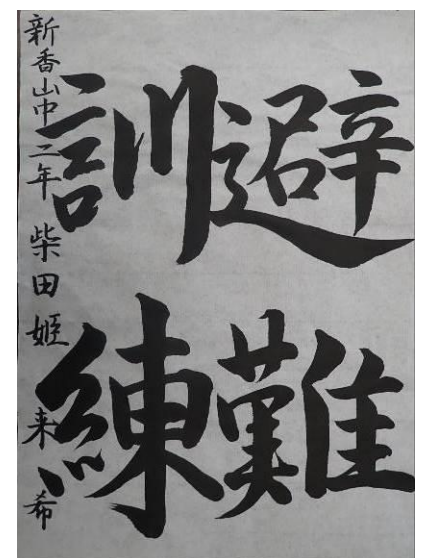 避難
訓練
新香山中二年 柴田姫来希